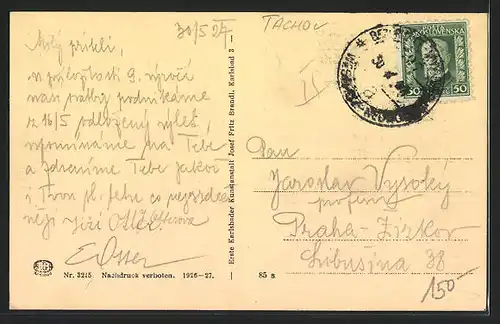 30/5 27
TACHOV
Milý příteli,
v příležitosti 9. výročí
naší svatby podnikáme
z 16/5 odložený výlet,
vzpomínáme na Tebe
a zdravíme Tebe jakož
i Tvou
Jiří Otter
EOtter
II
POŠTA
ČESKOSLOVENSKÁ
50 50
Pan
Jaroslav Vysoký
profesor
Praha-Žižkov
Libušina 38
150
Erste Karlsbader Kunstanstalt Josef Fritz Brandl, Karlsbad 3
Nr. 3215 Nachdruck verboten. 1926-27.
85 s